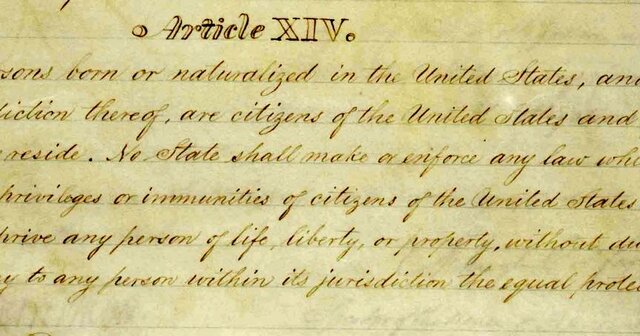 Article XIV.
sons born or naturalized in the United States, and
diction thereof, are citizens of the United States and
reside. No State shall make or enforce any law whi
privileges or immunities of citizens of the United States
prive any person of life, liberty, or property, without du
y to any person within its jurisdiction the equal prote